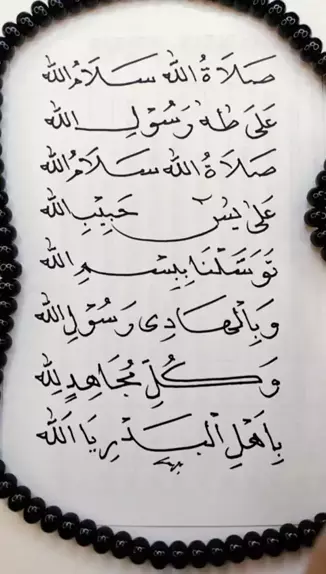 صَلَاةُ الله سَلَامُ الله
عَلَى طٰهٰ رَسُوْلِ الله
صَلَاةُ الله سَلَامُ الله
عَلَى يٰسٓ حَبِيْبِ الله
تَوَسَّلْنَا بِبِسْمِ الله
وَبِالْهَادِى رَسُوْلِ الله
وَكُلِّ مُجَاهِدٍ لِلّٰه
بِاَهْلِ الْبَدْرِ يَا اَلله